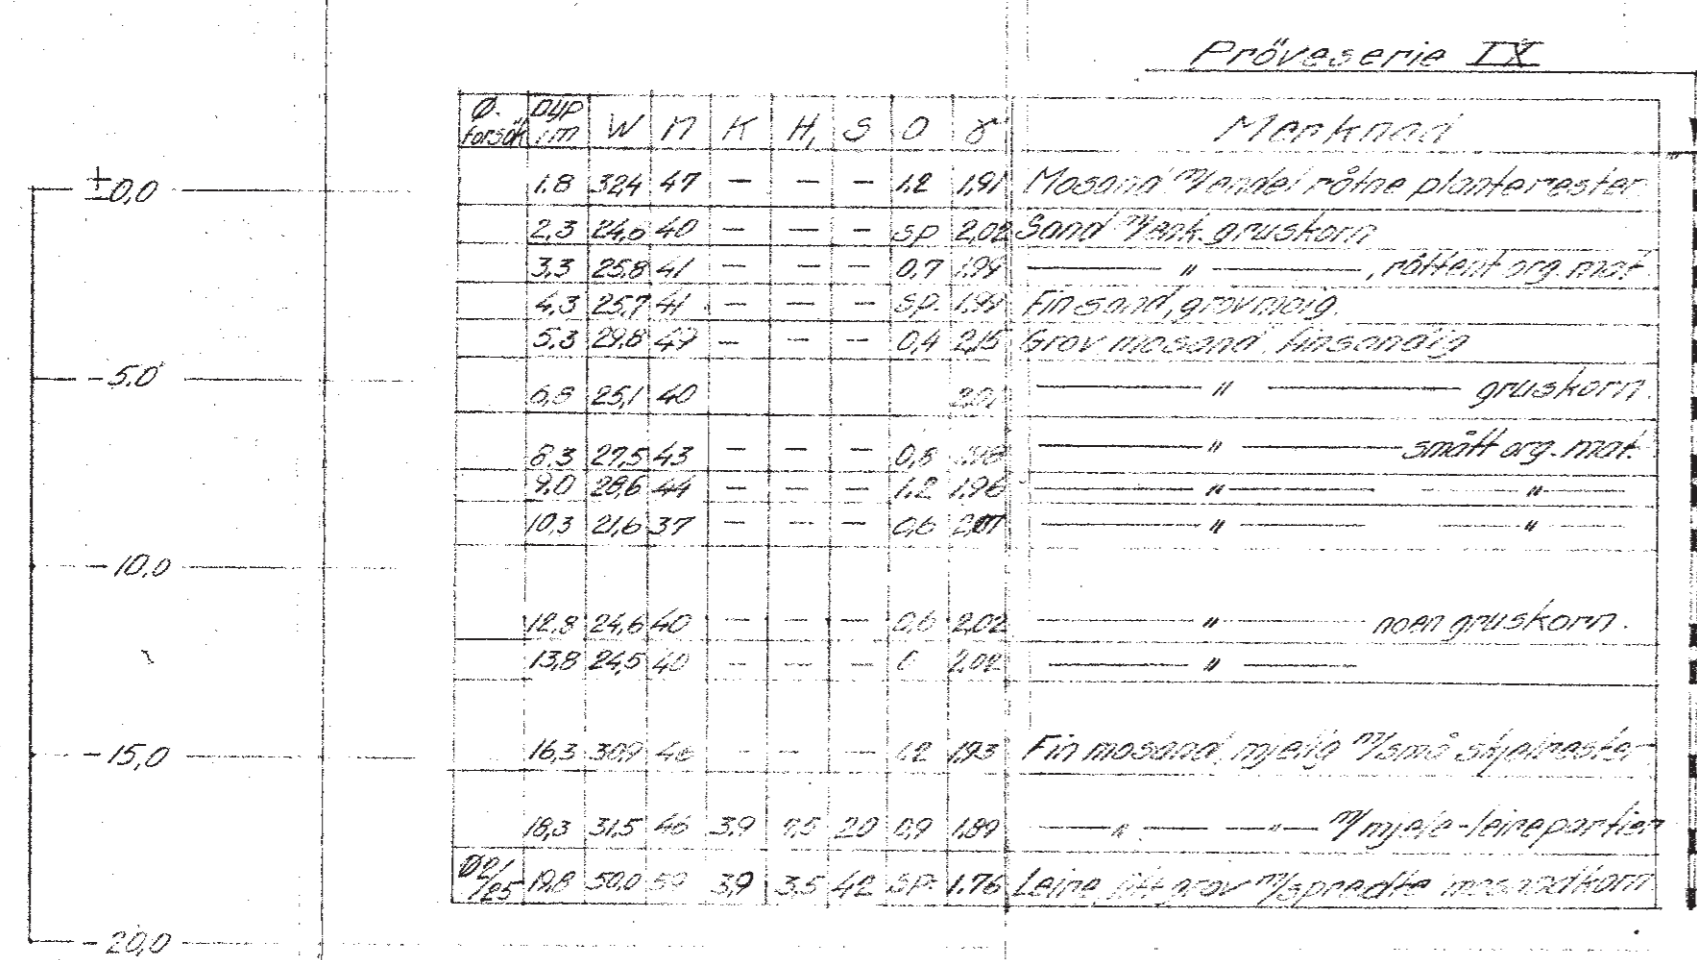 Pröveserie IX
Ø. forsök Dyp i m W n K H₁ S O γ Merknad
±0,0
1.8 32,4 47 — — — 1.2 1,91 Mosand m/endel råtne planterester
2,3 24,6 40 — — — sp 2,02 Sand m/enk. gruskorn
3,3 25,8 41 — — — 0,7 1,99 — " — , råttent org. mat.
4,3 25,7 41 — — — sp. Fin sand, grovmoig.
5,3 29,8 — — — 0,4 2,15 Grov mosand, finsandig
-5.0
6,8 25,1 40 2,01 — " — gruskorn.
8,3 27,5 43 — — — — " — smått org. mat.
9.0 28,6 44 — — — 1.2 1,96 — " — — " —
10,3 21,6 37 — — — 0,6 2,07 — " — — " —
-10,0
12,8 24,6 40 — — — 0,6 2,02 — " — noen gruskorn.
13,8 24,5 40 — — — 0 2,02 — " —
-15,0
16,3 30,9 46 — — — 1.2 1,93 Fin mosand, mjelig m/små skjelrester
18,3 31,5 46 3,9 2,0 0,9 1.89 — " — — " — m/mjele-leirepartier
Ø21/25 19,8 50,0 59 3,9 3,5 4,2 sp. 1.76 Leire, litt grov m/spredte mosandkorn
-20,0